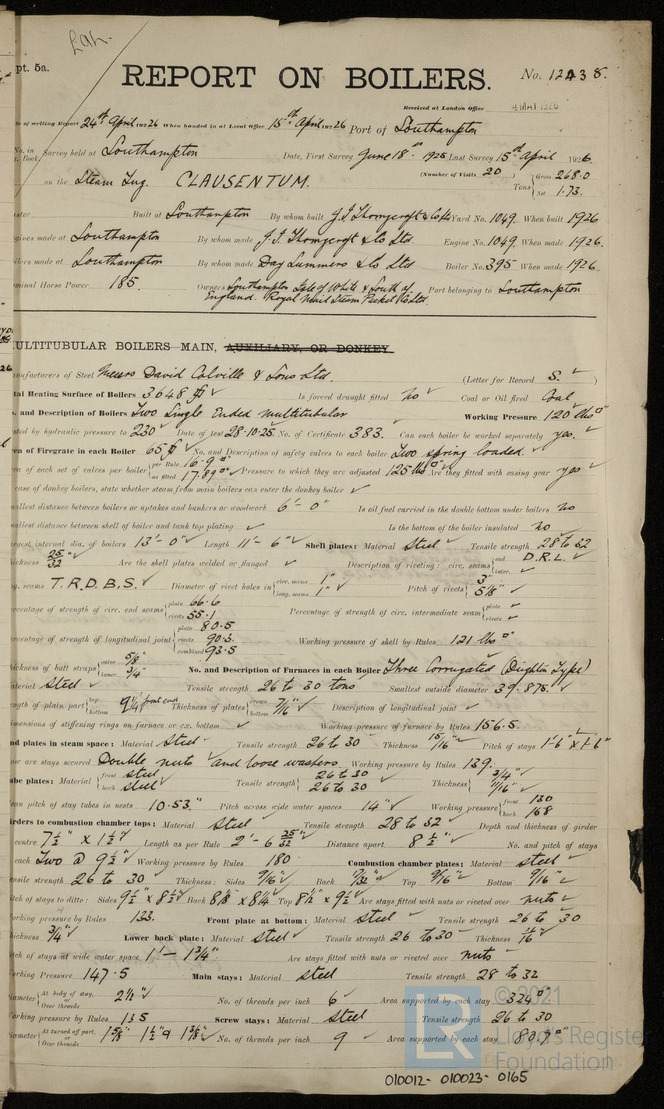 Lgh.
pt. 5a.
REPORT ON BOILERS.
No. 12438.
Received at London Office 4 MAY 1926
of writing Report 24th April 1926 When handed in at Local Office 15th April 1926 Port of Southampton
No. in Survey held at Southampton Date, First Survey June 18th 1925 Last Survey 15th April 1926.
Book. (Number of Visits 20 ) Gross 268.0
on the Steam Tug. CLAUSENTUM. Tons Net 1.73.
Built at Southampton By whom built J.I. Thornycroft & Co Ltd Yard No. 1049. When built 1926
gines made at Southampton By whom made J.I. Thornycroft & Co Ltd. Engine No. 1049. When made 1926.
ilers made at Southampton By whom made Day Summers & Co Ltd Boiler No. 395 When made 1926.
minal Horse Power 185. Owners Southampton Isle of Wight & South of England Royal Mail Steam Packet Co Ltd. Port belonging to Southampton
ULTITUBULAR BOILERS MAIN, AUXILIARY, OR DONKEY.
nufacturers of Steel Messrs David Colville & Sons Ltd. (Letter for Record S. )
tal Heating Surface of Boilers 3648 ft Is forced draught fitted no Coal or Oil fired Coal
. and Description of Boilers Two Single Ended multitubular Working Pressure 120 lbs
sted by hydraulic pressure to 230 Date of test 28.10.25 No. of Certificate 383. Can each boiler be worked separately yes.
ea of Firegrate in each Boiler 65 ft No. and Description of safety valves to each boiler Two spring loaded.
ea of each set of valves per boiler per Rule 16.9 as fitted 17.89 Pressure to which they are adjusted 125 lbs Are they fitted with easing gear yes
case of donkey boilers, state whether steam from main boilers can enter the donkey boiler
allest distance between boilers or uptakes and bunkers or woodwork 6'-0" Is oil fuel carried in the double bottom under boilers no
allest distance between shell of boiler and tank top plating Is the bottom of the boiler insulated no
rgest internal dia. of boilers 13'-0" Length 11'-6" Shell plates: Material Steel Tensile strength 28 to 32
ickness 25/32" Are the shell plates welded or flanged Description of riveting: circ. seams end D.R.L. inter.
g. seams T.R.D.B.S. Diameter of rivet holes in circ. seams 1" long. seams 1" Pitch of rivets 3" 5 1/8"
rcentage of strength of circ. end seams plate 66.6 rivets 55.1 Percentage of strength of circ. intermediate seam plate rivets
rcentage of strength of longitudinal joint plate 80.5 rivets 90.3. combined 93.5 Working pressure of shell by Rules 121 lbs
hickness of butt straps outer 5/8" inner 3/4" No. and Description of Furnaces in each Boiler Three Corrugated (Deighton Type)
aterial Steel Tensile strength 26 to 30 tons Smallest outside diameter 39.875.
ngth of plain part top bottom 9 1/4" front end Thickness of plates crown bottom 7/16" Description of longitudinal joint
imensions of stiffening rings on furnace or c.c. bottom Working pressure of furnace by Rules 156.5.
nd plates in steam space: Material Steel Tensile strength 26 to 30 Thickness 15/16" Pitch of stays 1'-6" x 1'-6"
ow are stays secured Double nuts and loose washers. Working pressure by Rules 139.
ube plates: Material front steel back steel Tensile strength 26 to 30 26 to 30 Thickness 3/4" 11/16"
ean pitch of stay tubes in nests 10.53." Pitch across wide water spaces 14" Working pressure front 130 back 168
irders to combustion chamber tops: Material Steel Tensile strength 28 to 32 Depth and thickness of girder
centre 7 1/2" x 1 1/2" Length as per Rule 2'-6 25/32" Distance apart 8 1/2" No. and pitch of stays
each Two @ 9 1/2" Working pressure by Rules 180 Combustion chamber plates: Material steel
ensile strength 26 to 30 Thickness: Sides 9/16" Back Top 9/16" Bottom 9/16"
itch of stays to ditto: Sides 9 1/2" x 8 1/2" Back 8 1/8 x 8 3/4 Top 8 1/2" x 9 1/2" Are stays fitted with nuts or riveted over nuts
orking pressure by Rules 133. Front plate at bottom: Material steel Tensile strength 26 to 30
hickness 3/4" Lower back plate: Material Steel Tensile strength 26 to 30 Thickness
itch of stays at wide water space 1'-1 3/4" Are stays fitted with nuts or riveted over nuts
orking Pressure 147.5 Main stays: Material steel Tensile strength 28 to 32
iameter At body of stay, or Over threads 2 1/2" No. of threads per inch 6 Area supported by each stay 324"
orking pressure by Rules 135 Screw stays: Material Steel Tensile strength 26 to 30
iameter At turned off part, or Over threads 1 5/8" 1 1/2" & 1 3/8" No. of threads per inch 9 Area supported by each stay 89.7"
© 2021
Lloyd's Register
Foundation
010012-010023-0165